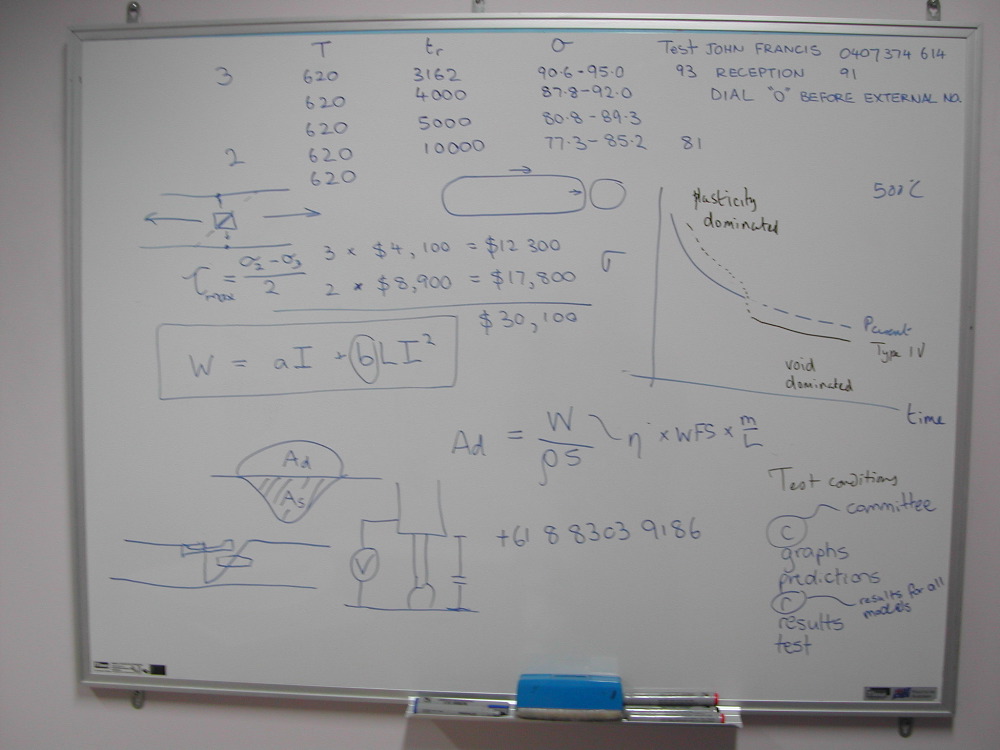 T tr σ Test JOHN FRANCIS 0407 374 614
3 620 3162 90.6-95.0 93 RECEPTION 91
620 4000 87.8-92.0 DIAL "0" BEFORE EXTERNAL NO.
620 5000 80.8-89.3
2 620 10000 77.3-85.2 81
620
500°C
plasticity
dominated
3 × $4,100 = $12 300
τmax = σ2-σ3 / 2
2 × $8,900 = $17,800
$30,100
σ
W = aI + bLI²
Parent
Type IV
void
dominated
time
Ad = W / ρS η × WFS × m/L
Ad
As
V
+61 8 8303 9186
Test conditions
committee
C
graphs
predictions
r
results for all
models
results
test